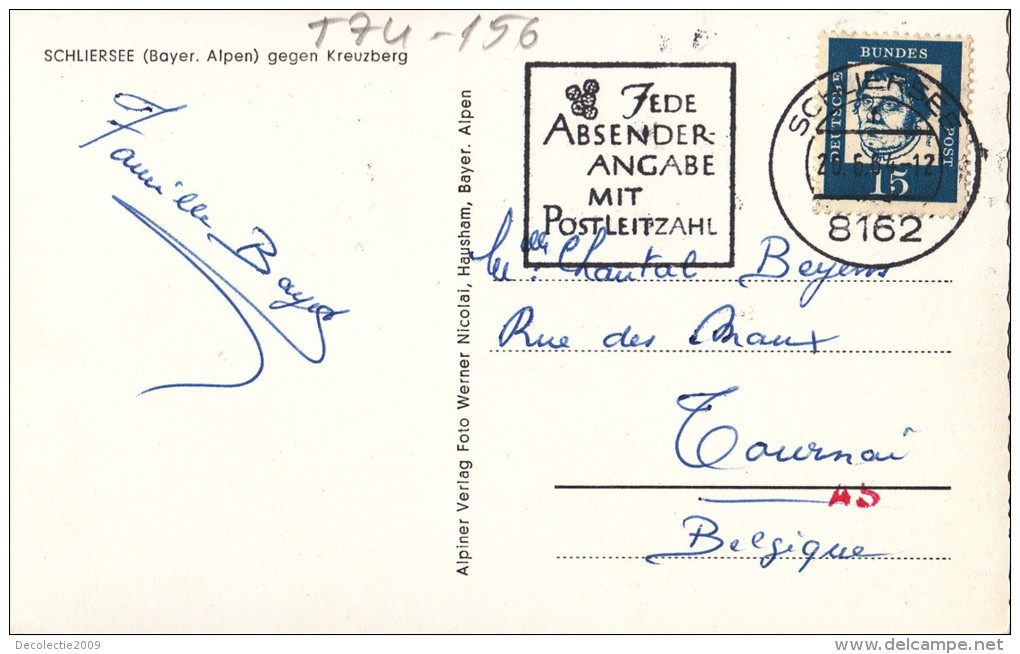 T74-156
SCHLIERSEE (Bayer. Alpen) gegen Kreuzberg
Famille Bayer
Alpiner Verlag Foto Werner Nicolai, Hausham, Bayer. Alpen
JEDE
ABSENDER-
ANGABE
MIT
POSTLEITZAHL
SCHLIERSEE
8162
DEUTSCHE
BUNDES
POST
15
Mlle: Chantal Beyens
Rue des Maux
Tournai
Belgique
Decolectie2009
delcampe.net